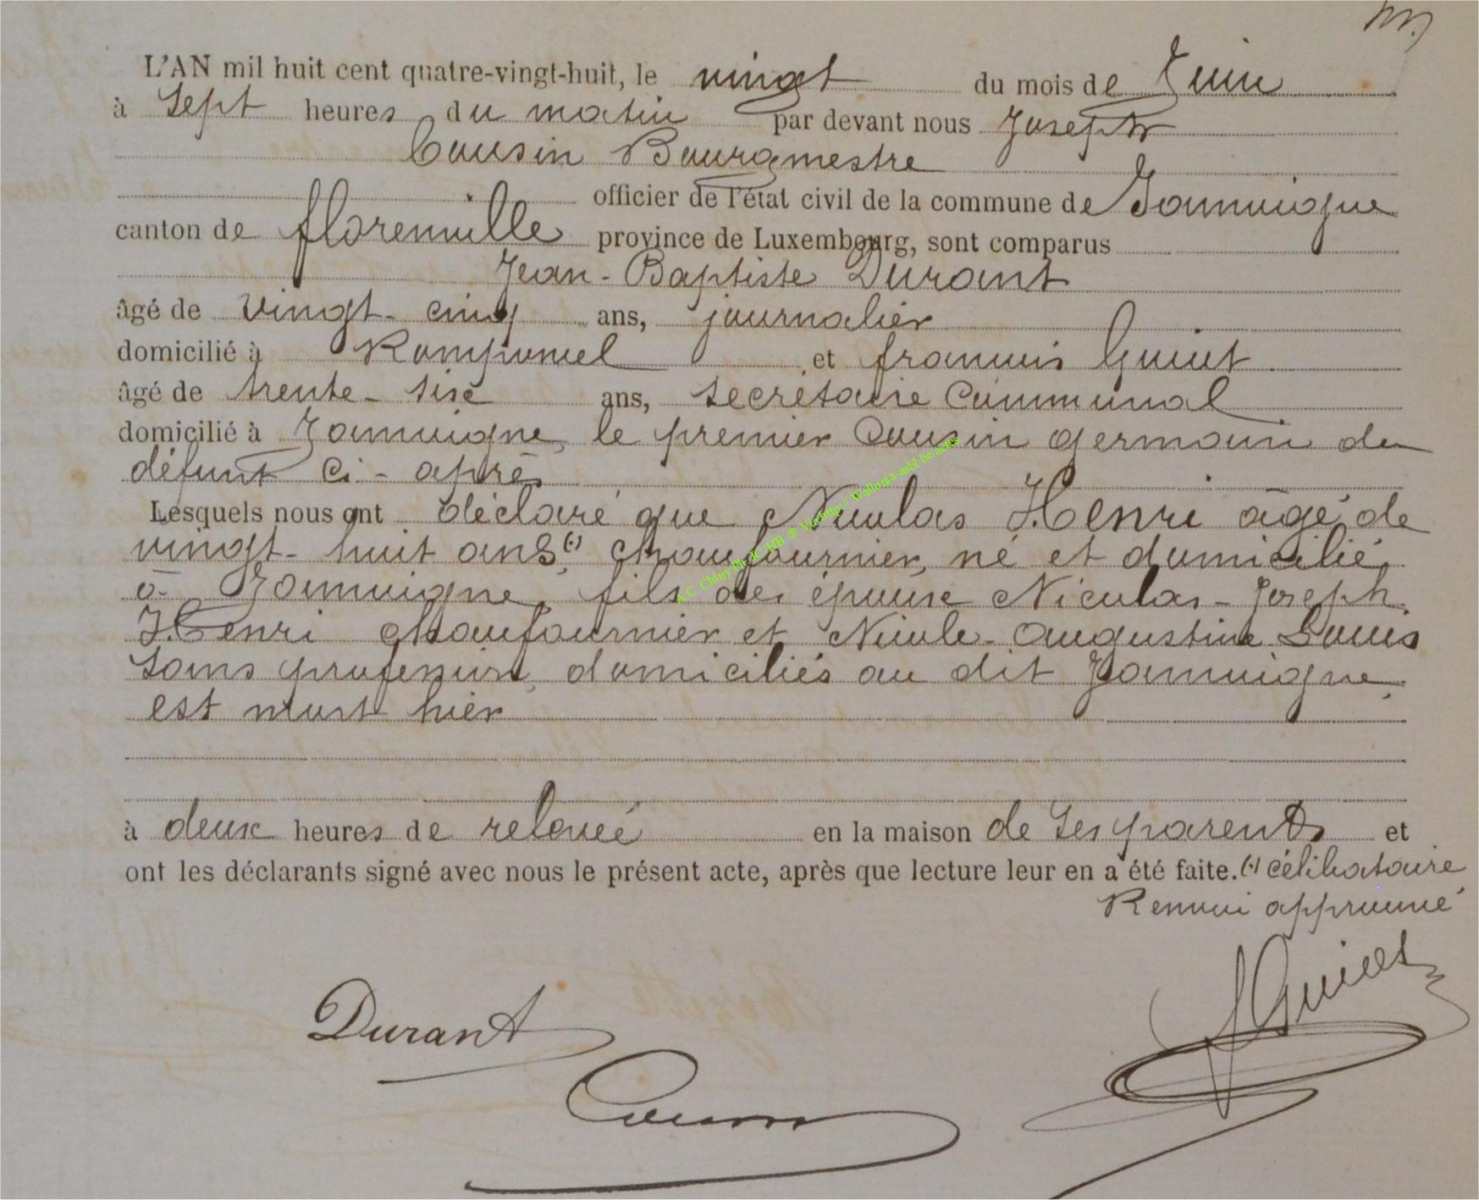 L'AN mil huit cent quatre-vingt-huit, le vingt du mois de Juin
à sept heures du matin par devant nous Joseph
Cousin Bourgmestre
officier de l'état civil de la commune de Jamoigne
canton de florenville province de Luxembourg, sont comparus
Jean-Baptiste Durant
âgé de vingt-cinq ans, journalier
domicilié à Romponcel et francois Guiot
âgé de trente-six ans, secrétaire Communal
domicilié à Jamoigne, le premier Cousin germain du
défunt ci-après
Lesquels nous ont déclaré que Nicolas Henri âgé de
vingt-huit ans, (1) chaufournier, né et domicilié
à Jamoigne, fils des époux Nicolas-Joseph
Henri chaufournier et Nicole-Augustine Louis
sans profession, domiciliés au dit Jamoigne,
est mort hier
à deux heures de relevée en la maison de ses parents et
ont les déclarants signé avec nous le présent acte, après que lecture leur en a été faite. (1) célibataire
Renvoi approuvé
Durant
Cousin
f Guiot